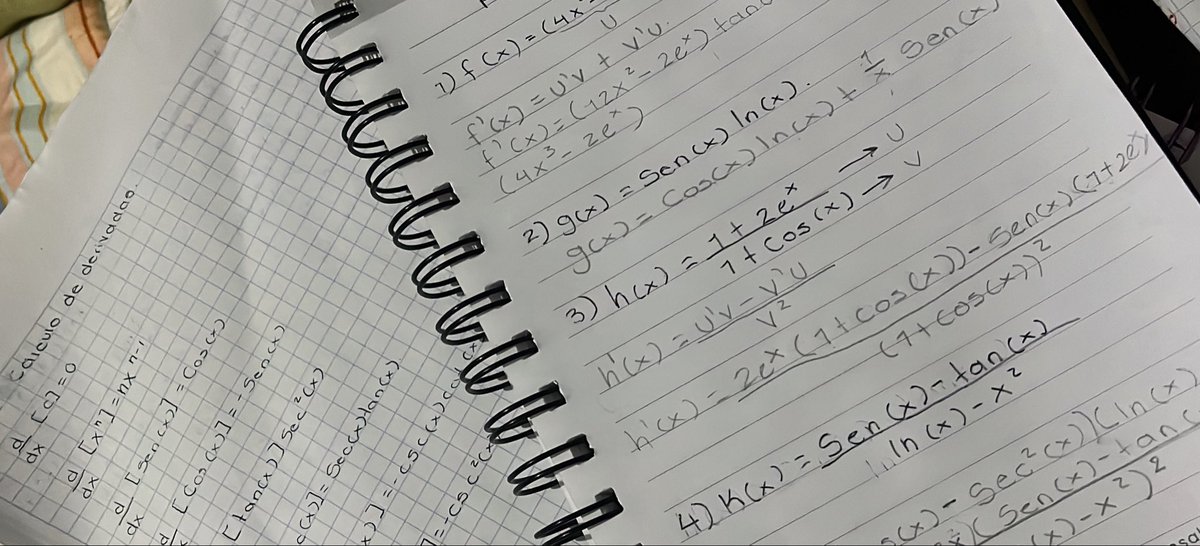 Calculo de derivadas.
d/dx [c] = 0
d/dx [xⁿ] = nxⁿ⁻¹
d/dx [Sen(x)] = Cos(x)
[Cos(x)] = -Sen(x)
[tan(x)] Sec²(x)
c(x)] = Sec(x)tan(x)
x)] = -csc(x)c
] = -csc²(x)
1) f(x) = (4x
U
f'(x) = U'V + V'U.
f'(x) = (12x² - 2eˣ) tan
(4x³ - 2eˣ)
2) g(x) = Sen(x) ln(x).
g(x) = Cos(x) ln(x) + 1/x Sen(x)
3) h(x) = 1 + 2eˣ → U
1 + Cos(x) → V
h'(x) = U'V - V'U
V²
h'(x) = 2eˣ (1 + cos(x)) - Sen(x) (1 + 2eˣ
(1 + cos(x))²
4) K(x) = Sen(x) - tan(x)
ln(x) - x²
s(x) - Sec²(x)(ln(x)
(Sen(x) - tan(
(x) - x²)²